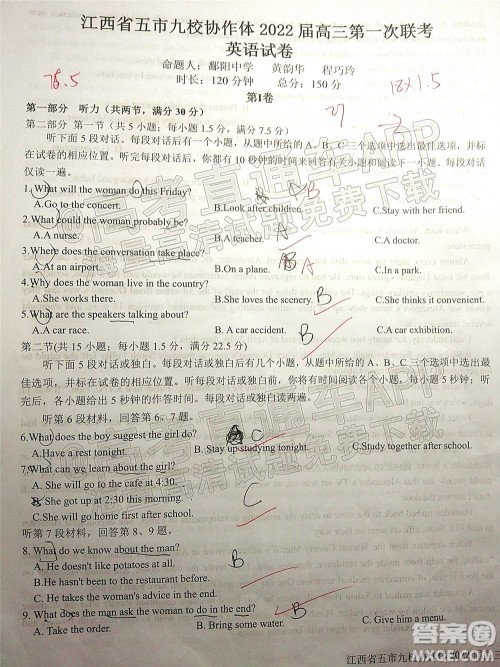 江西省五市九校协作体 2022 届高三第一次联考
英语试卷
命题人:鄱阳中学 黄韵华 程巧玲
时长:120 分钟 总分:150 分
78.5
第Ⅰ卷
27
18×1.5
第一部分 听力(共两节,满分 30 分)
第二部分 第一节(共 5 小题;每小题 1.5 分,满分 7.5 分)
听下面 5 段对话。每段对话后有一个小题,从题中所给的 A、B、C 三个选项中选出最佳选项,并标
在试卷的相应位置。听完每段对话后,你都有 10 秒钟的时间来回答有关小题和阅读下一小题。每段对话
仅读一遍。
1. What will the woman do this Friday? B
A.Go to the concert. B.Look after children. C.Stay with her friend.
2.What could the woman probably be? A
A.A nurse. B.A teacher. C.A doctor.
3.Where does the conversation take place? B A
A.At an airport. B.On a plane. C.In a park.
4.Why does the woman choose the company? B
A.She works there. B.She loves the scenery. C.She finds it convenient.
5.What are the speakers talking about?
A.A car race. B.A car accident. B C.A car exhibition.
第二节(共 15 小题;每小题 1.5 分,满分 22.5 分)
听下面 5 段对话或独白。每段对话或独白后有几个小题,从题中所给的 A、B、C 三个选项中选出最
佳选项,并标在试卷的相应位置。听每段对话或独白前,你将有时间阅读各个小题,每小题 5 秒钟,听
完后,各小题给出 5 秒钟的作答时间。每段对话或独白读两遍。
听第 6 段材料,回答第 6、7 题。
6.What does the boy suggest the girl do? C
A.Have a rest tonight. B. Stay up studying tonight. C.Study together after school.
7.What can we learn about the girl?
A. She will go to the cafe at 4:30.
B. She got up at 2:30 this morning. C
C.She will go home first after school.
听第 7 段材料,回答第 8、9 题。
8. What do we know about the man?
A. He doesn't like potatoes at all. B
B.He hasn't been to the restaurant before.
C. He takes the woman's advice in the end.
9. What does the man ask the woman to do in the end? B
A. Take the order. B. Bring some water. C. Give him a menu.
江西省五市九校协作体
高考直通车APP
每日高清试题免费下载
答案圈